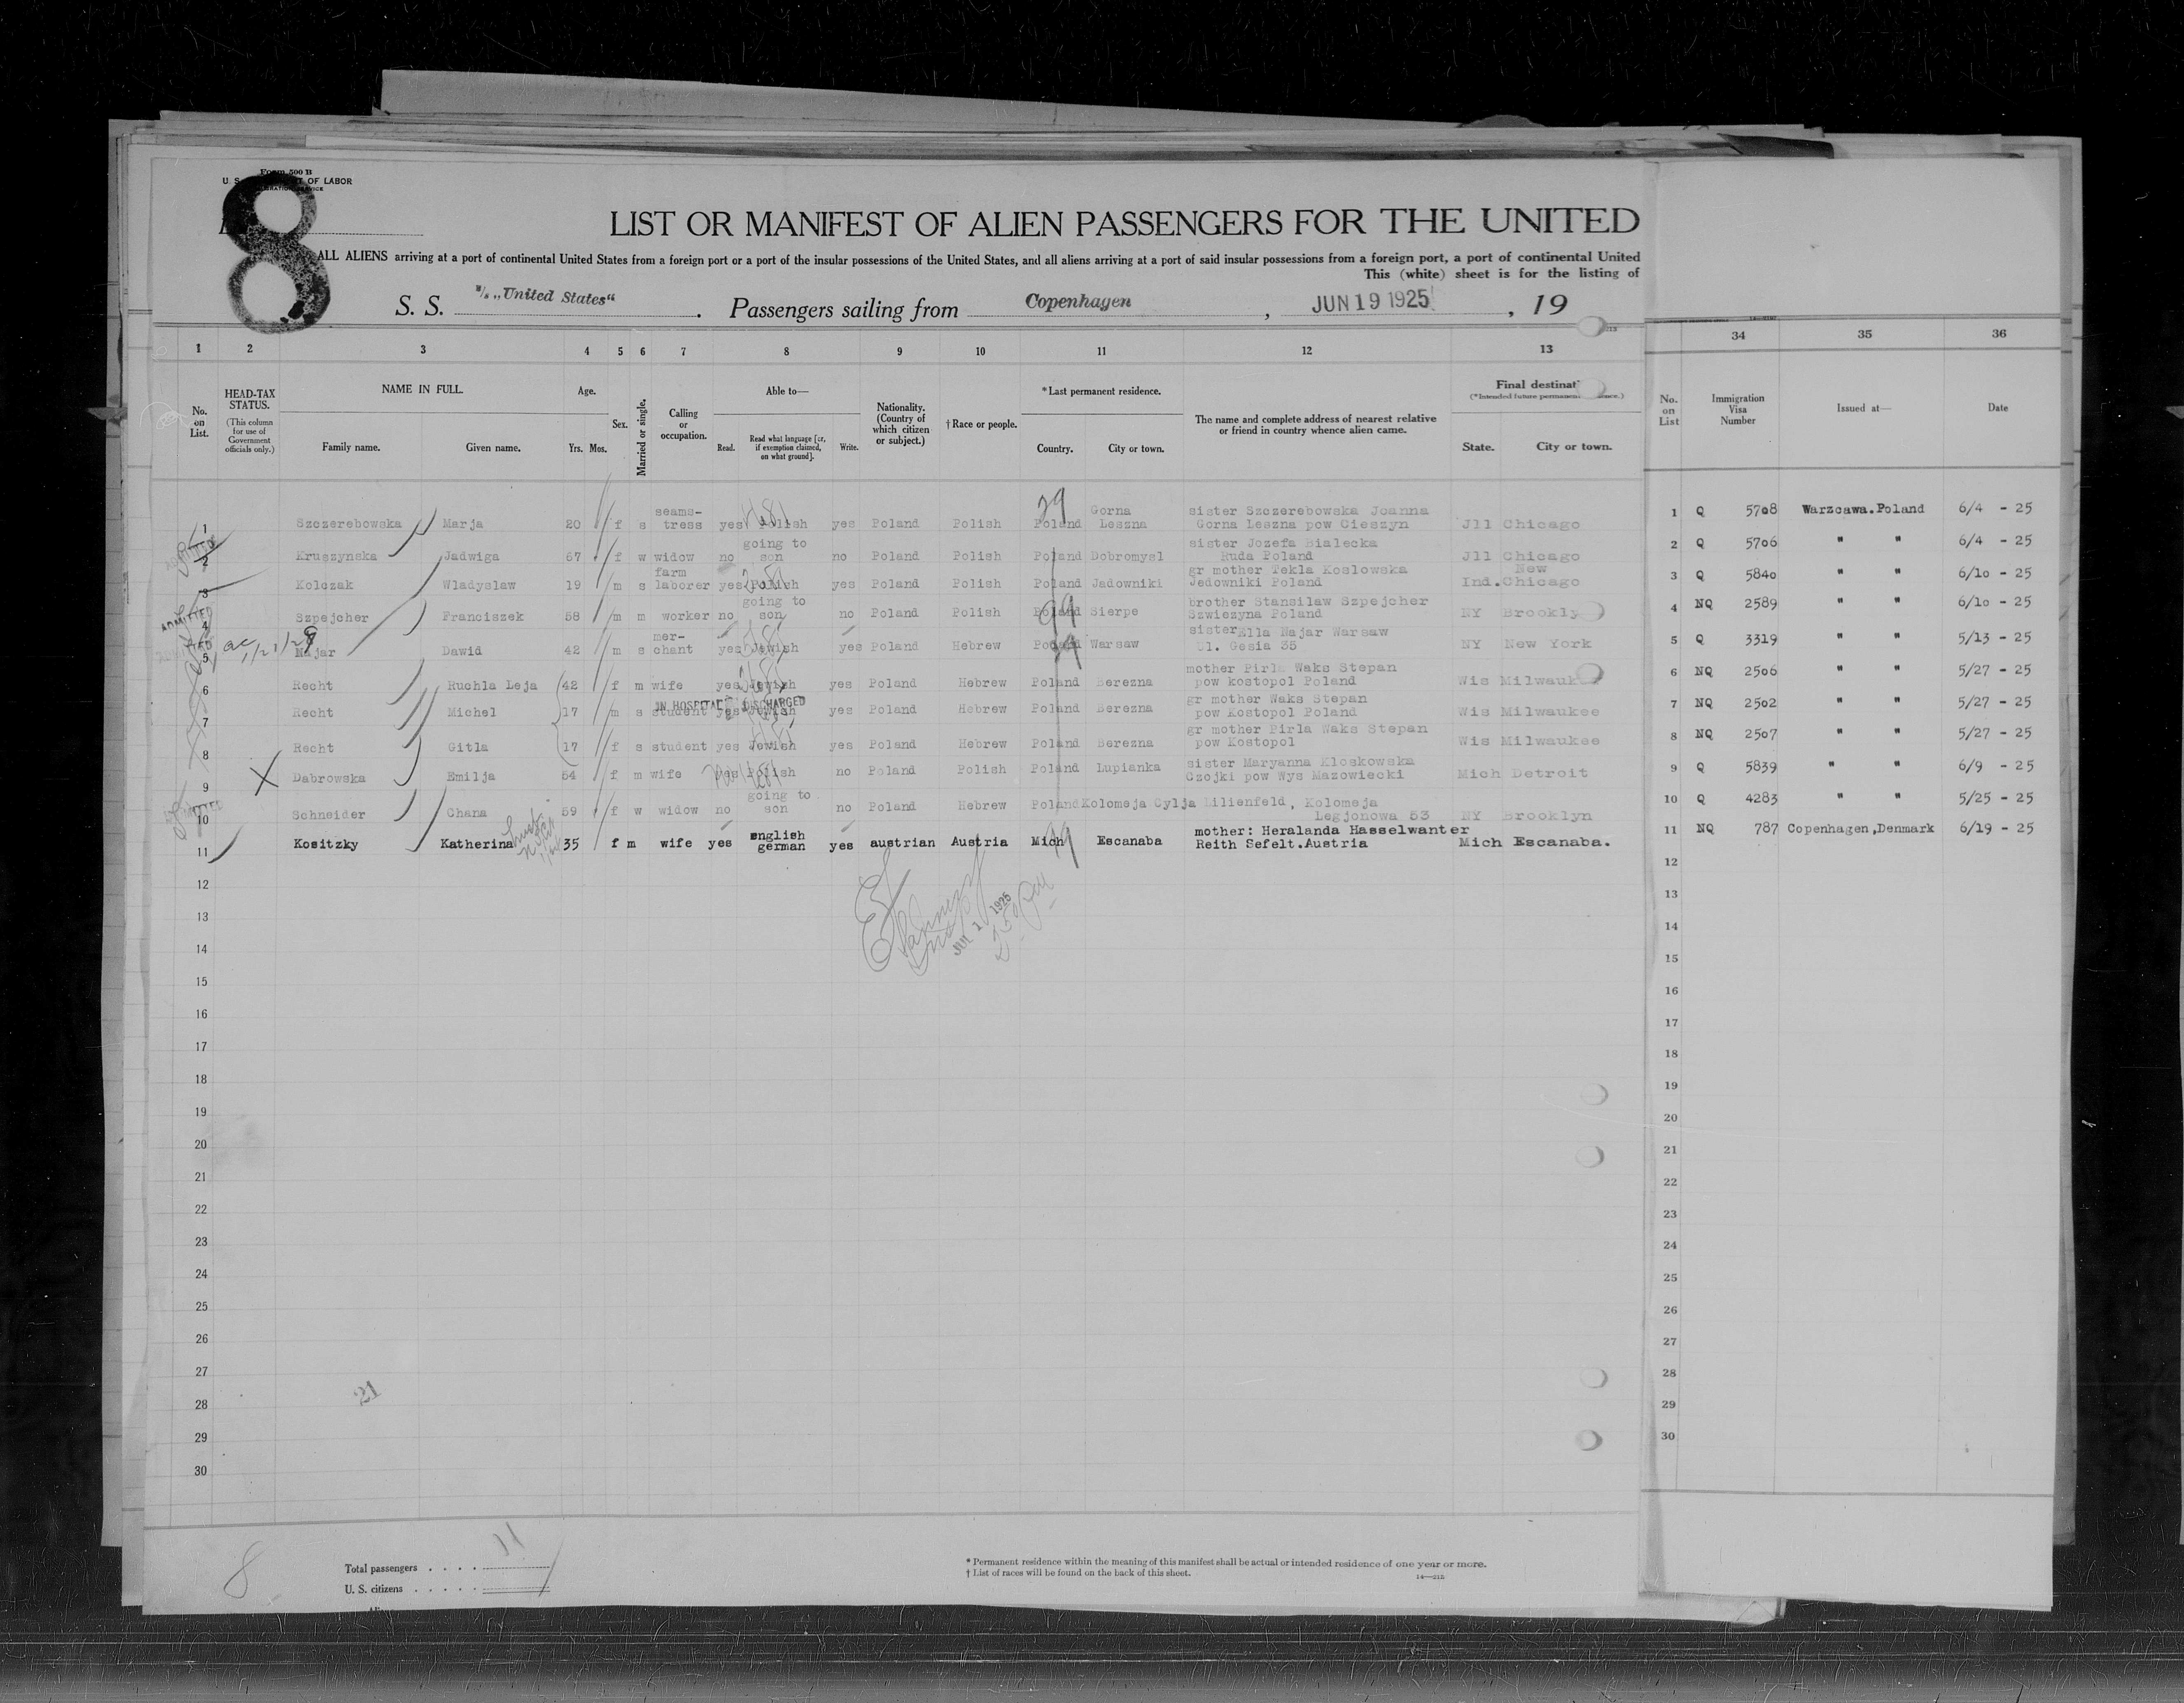 Form 500 B
U. S. OF LABOR
8
LIST OR MANIFEST OF ALIEN PASSENGERS FOR THE UNITED
ALL ALIENS arriving at a port of continental United States from a foreign port or a port of the insular possessions of the United States, and all aliens arriving at a port of said insular possessions from a foreign port, a port of continental United
This (white) sheet is for the listing of
S. S. s/s „United States“ . Passengers sailing from Copenhagen , JUN 19 1925 , 19
1 2 3 4 5 6 7 8 9 10 11 12 13 34 35 36
No. on List.
HEAD-TAX STATUS.
(This column for use of Government officials only.)
NAME IN FULL.
Family name. Given name.
Age.
Yrs. Mos.
Sex.
Married or single.
Calling or occupation.
Able to—
Read. Read what language [or, if exemption claimed, on what ground]. Write.
Nationality. (Country of which citizen or subject.)
† Race or people.
*Last permanent residence.
Country. City or town.
The name and complete address of nearest relative or friend in country whence alien came.
Final destinat
(*Intended future permanent
State. City or town.
No. on List
Immigration Visa Number
Issued at—
Date
1 Szczerebowska Marja 20 f s seams-tress yes Polish yes Poland Polish Poland Gorna Leszna sister Szczerebowska Joanna Gorna Leszna pow Cieszyn Jll Chicago 1 Q 5708 Warzcawa.Poland 6/4 - 25
2 Kruszynska Jadwiga 67 f w widow no going to son no Poland Polish Poland Dobromysl sister Jozefa Bialecka Ruda Poland Jll Chicago 2 Q 5706 " " 6/4 - 25
3 Kolczak Wladyslaw 19 m s farm laborer yes Polish yes Poland Polish Poland Jadowniki gr mother Tekla Koslowska Jedowniki Poland Ind. New Chicago 3 Q 5840 " " 6/10 - 25
4 Szpejcher Franciszek 58 m m worker no going to son no Poland Polish Poland Sierpe brother Stansilaw Szpejcher Szwiezyna Poland NY Brookly 4 NQ 2589 " " 6/10 - 25
5 Majar Dawid 42 m s mer-chant yes Jewish yes Poland Hebrew Poland Warsaw sister Ella Najar Warsaw Ul. Gesia 35 NY New York 5 Q 3319 " " 5/13 - 25
6 Recht Ruchla Leja 42 f m wife yes Jewish yes Poland Hebrew Poland Berezna mother Pirla Waks Stepan pow kostopol Poland Wis Milwauk 6 NQ 2506 " " 5/27 - 25
IN HOSPITAL DISCHARGED
7 Recht Michel 17 m s student yes Jewish yes Poland Hebrew Poland Berezna gr mother Waks Stepan pow Kostopol Poland Wis Milwaukee 7 NQ 2502 " " 5/27 - 25
8 Recht Gitla 17 f s student yes Jewish yes Poland Hebrew Poland Berezna gr mother Pirla Waks Stepan pow Kostopol Wis Milwaukee 8 NQ 2507 " " 5/27 - 25
9 Dabrowska Emilja 54 f m wife yes Polish no Poland Polish Poland Lupianka sister Maryanna Kloskowska Czojki pow Wys Mazowiecki Mich Detroit 9 Q 5839 " " 6/9 - 25
10 Schneider Chana 59 f w widow no going to son no Poland Hebrew Poland Kolomeja Cylja Lilienfeld, Kolomeja Legjonowa 53 NY Brooklyn 10 Q 4283 " " 5/25 - 25
11 Kositzky Katherina 35 f m wife yes english german yes austrian Austria Mich Escanaba mother: Heralanda Hasselwanter Reith Sefelt.Austria Mich Escanaba. 11 NQ 787 Copenhagen,Denmark 6/19 - 25
12 12
13 JUL 1 1925 13
14 14
15 15
16 16
17 17
18 18
19 19
20 20
21 21
22 22
23 23
24 24
25 25
26 26
27 27
21
28 28
29 29
30 30
8
Total passengers . . . . 11
U. S. citizens . . . . .
* Permanent residence within the meaning of this manifest shall be actual or intended residence of one year or more.
† List of races will be found on the back of this sheet.